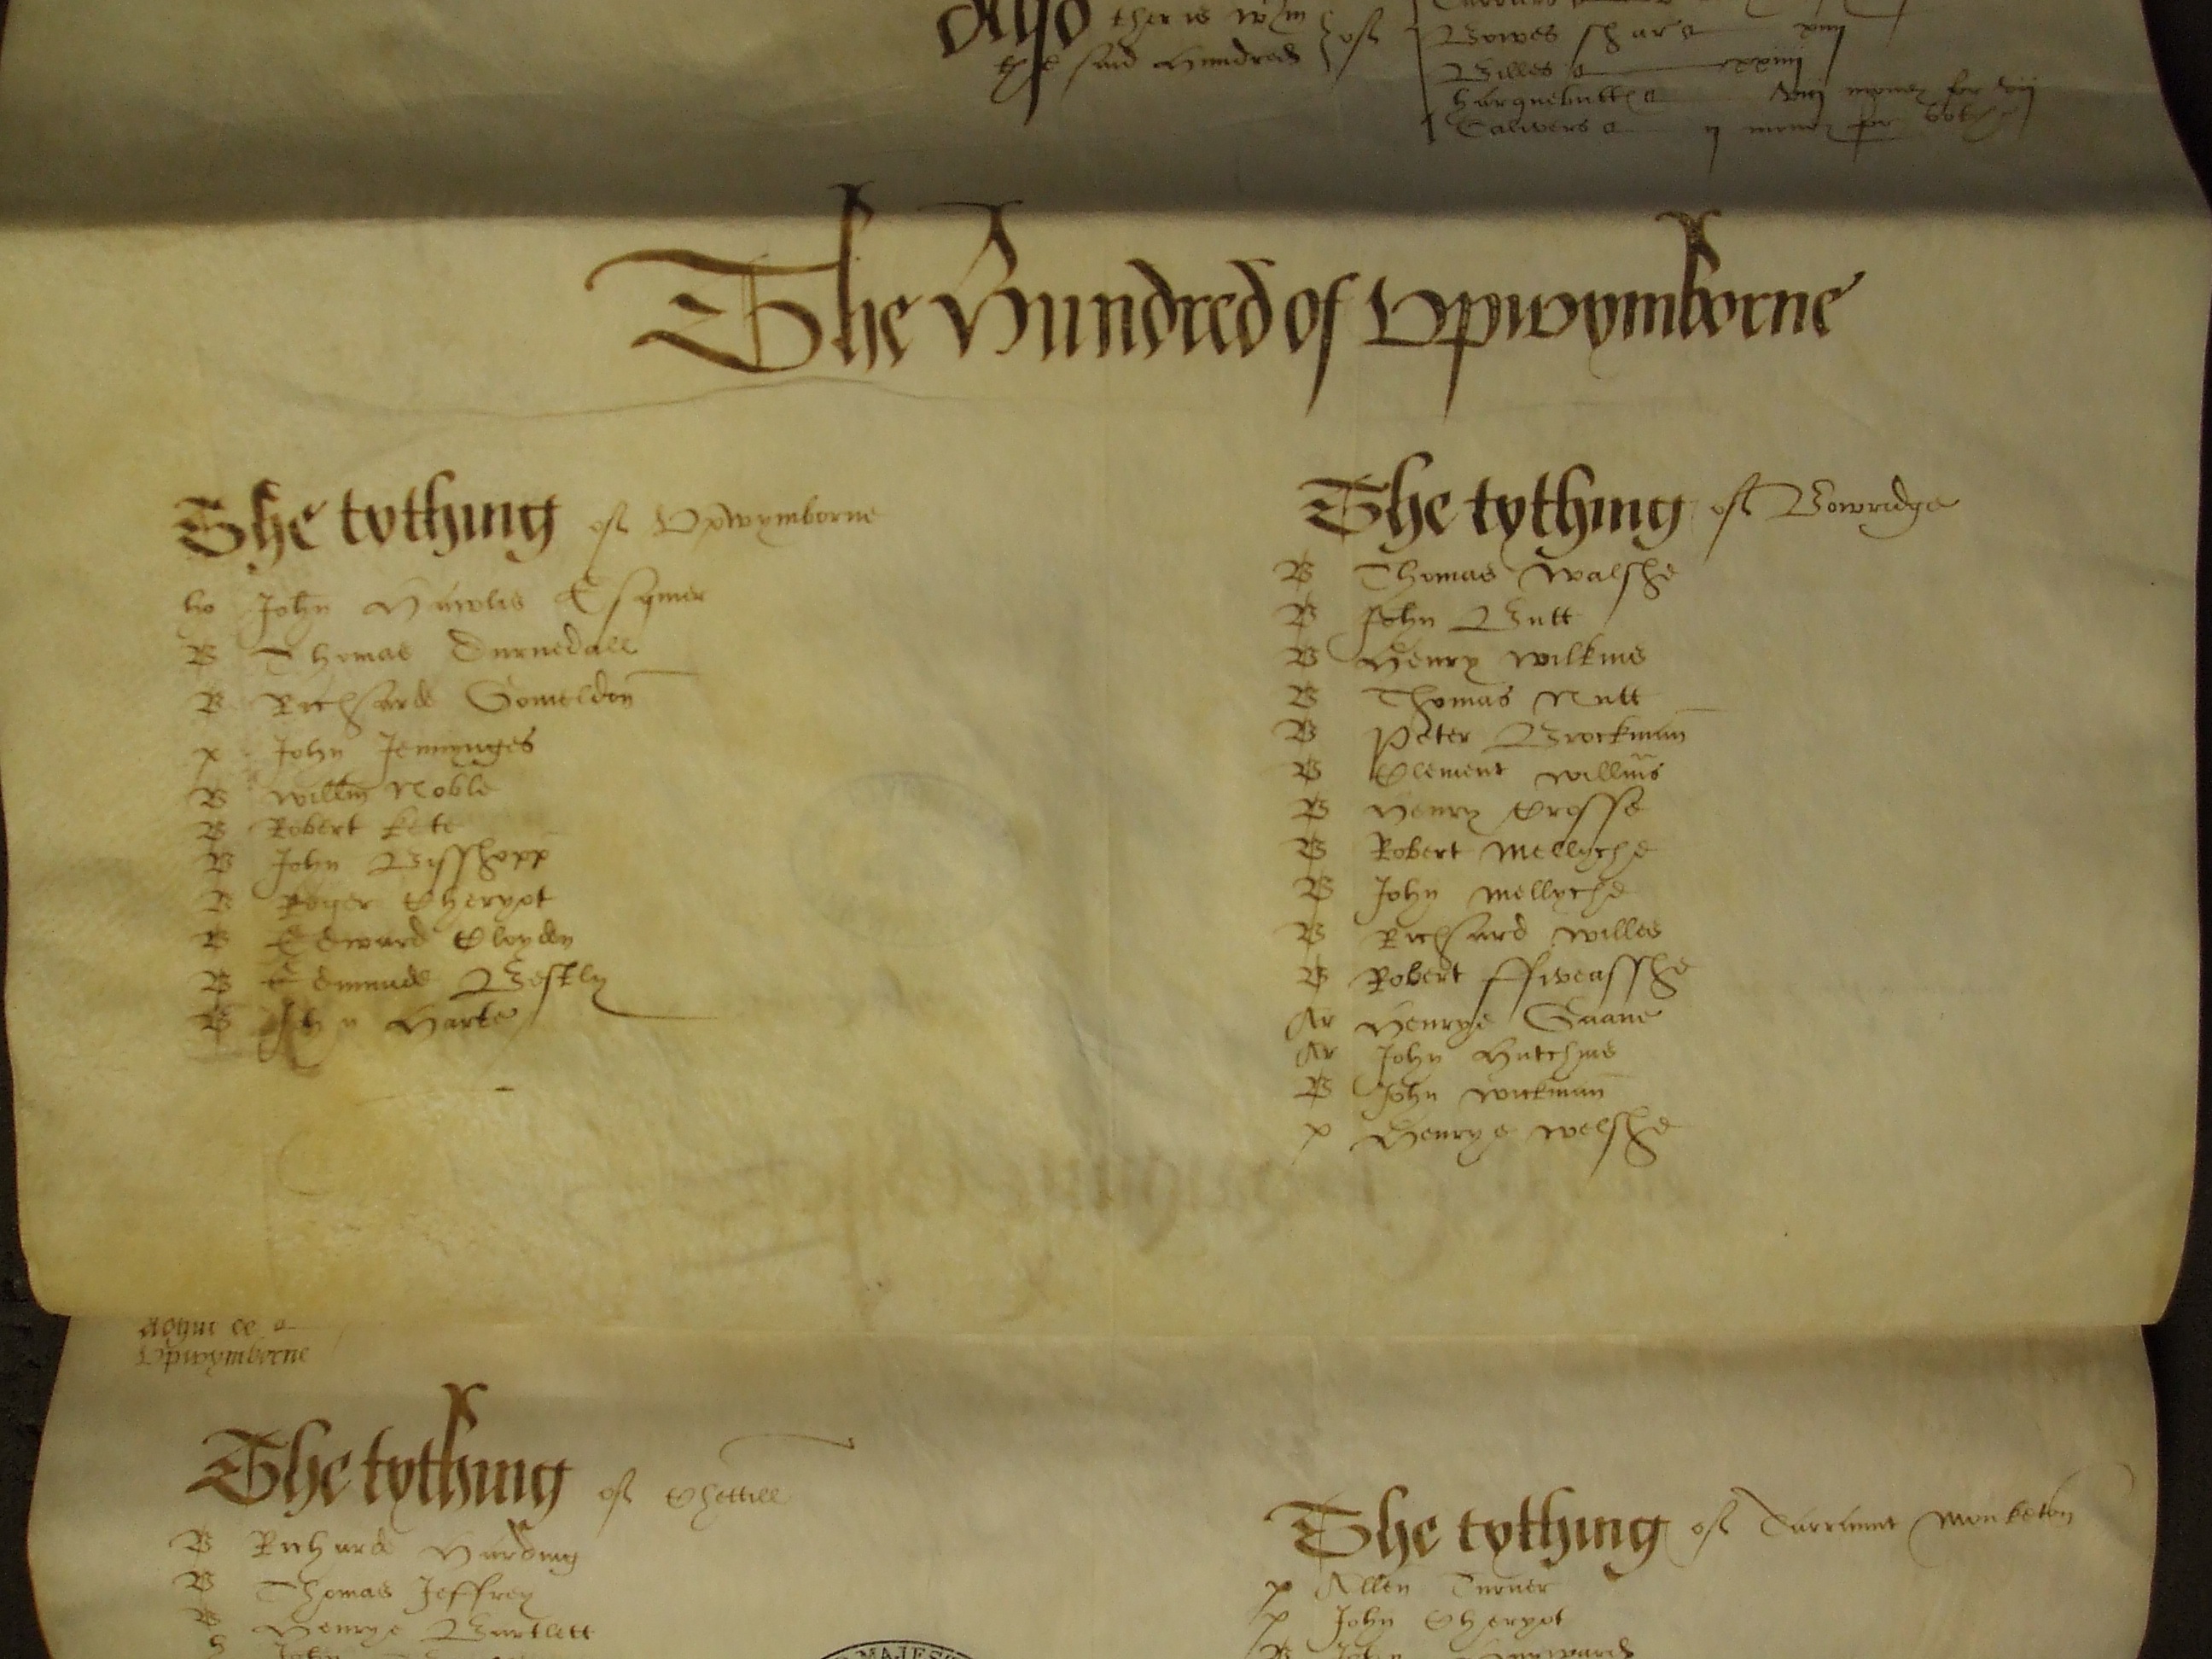 Also ther is wtin
the said Hundred of
Bowes shar xiiij
Billes xxiiij
harquebutt money for
Calivers ij money for both
The Hundred of Upwymborne
The tything of Upwymborne
ho John Hawlis Esquier
B Thomas Durnedall
B Richarde Gomeldon
p John Jennynges
B Willm Noble
B Robert Kete
B John Bysshopp
B Roger Cherypt
B Edward Cloyden
B Edmunde
B John Harte
The tything of Bowridge
B Thomas Walshe
B John Butt
B Henry Wilkins
B Thomas Nutt
B Peter Brockman
B Clement Willms
B Henry Crosse
B Robert Mellyche
B John Mellyche
B Richard Willes
B Robert
Ar Henrye Gaane
Ar John Hutchins
B John Wickman
p Henrye Welshe
Upwymborne
The tything of Chettill
B Richarde Harding
B Thomas Jeffrey
B Henrye Bartlett
h John
The tything of Tarrannt Monketon
p Allen Turner
p John Cherypt
B John
MAJES